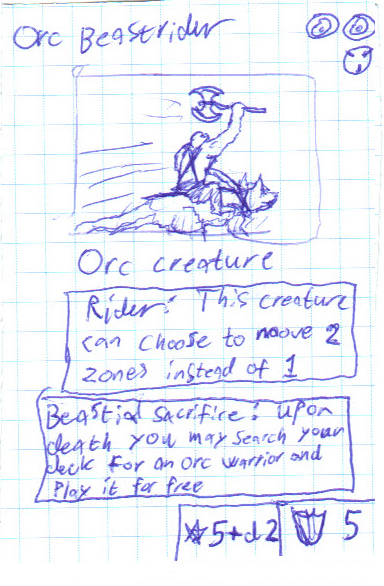 Orc Beastrider
Orc creature
Rider: This creature
can choose to moove 2
zones instead of 1
Beastial sacrifice: upon
death you may search your
deck for an orc warrior and
Play it for free
5+d2 5